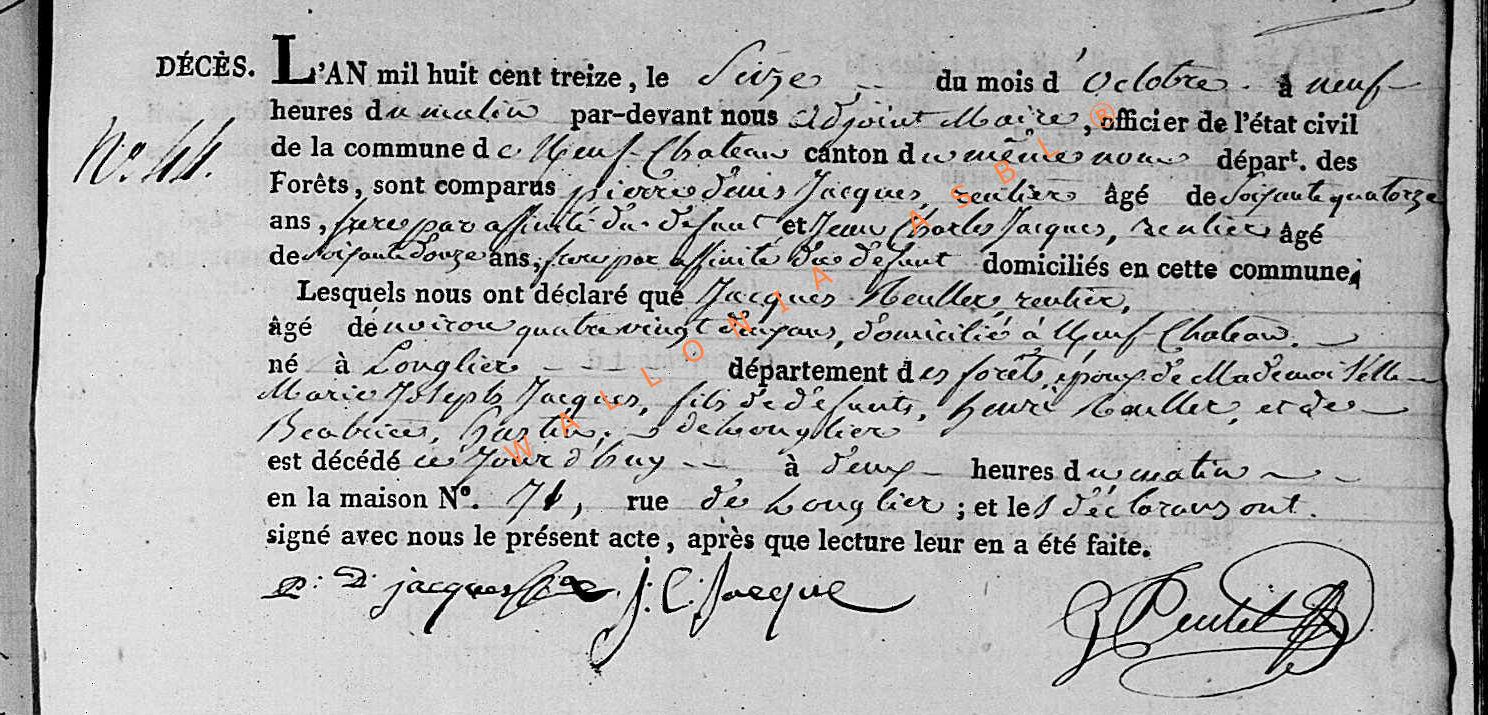 DÉCÈS. L'AN mil huit cent treize, le Seize du mois d'octobre à neuf
heures du matin par-devant nous adjoint Maire, officier de l'état civil
No. 44.
de la commune de Neuf-Chateau canton du même nom départ. des
Forêts, sont comparus pierre denis Jacques, rentier âgé de soixante quatorze
ans, frere par affinité du défunt et Jean Charles Jacques, rentier âgé
de soixante douze ans, frere par affinité du défunt domiciliés en cette commune,
Lesquels nous ont déclaré que Jacques rentier,
âgé d'environ quatre vingt dix ans, domicilié à Neuf-Chateau.
né à Longlier département des forêts, époux de Mademoiselle
Marie Joseph Jacques, fils de défunts, henri et de
Beatrice, de Longlier
est décédé ce Jourd'huy à deux heures du matin
en la maison No. 71, rue de Longlier; et les déclarans ont
signé avec nous le présent acte, après que lecture leur en a été faite.
P: D: jacques J: C: Jacque
WALLONIA ASBL ®